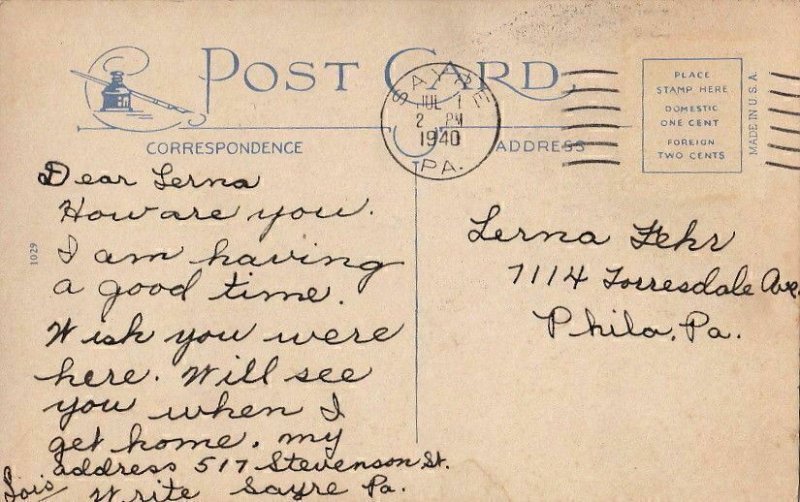 POST CARD
CORRESPONDENCE
ADDRESS
SAYRE
JUL 1
2 PM
1940
PA.
PLACE
STAMP HERE
DOMESTIC
ONE CENT
FOREIGN
TWO CENTS
MADE IN U.S.A.
1029
Dear Lerna
How are you.
I am having
a good time.
Wish you were
here. Will see
you when I
get home. my
address 517 Stevenson St.
Write Sayre Pa.
Lois
Lerna Fehr
7114 Torresdale Ave.
Phila. Pa.